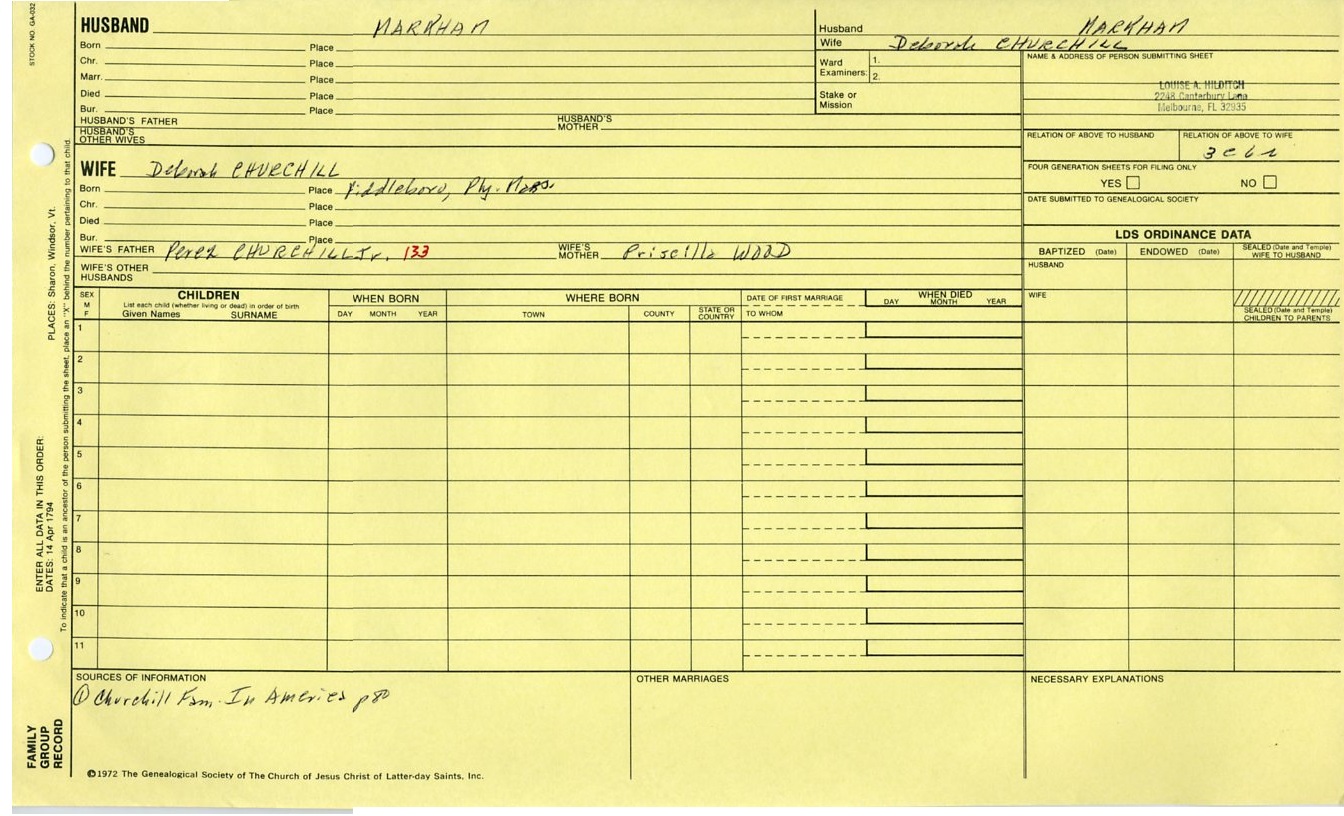 STOCK NO. GA-032
HUSBAND MARKHAM
Born Place
Chr. Place
Marr. Place
Died Place
Bur. Place
HUSBAND'S FATHER HUSBAND'S MOTHER
HUSBAND'S OTHER WIVES
Husband MARKHAM
Wife Deborah CHURCHILL
Ward Examiners: 1.
2.
Stake or Mission
NAME & ADDRESS OF PERSON SUBMITTING SHEET
LOUISE A. HILDITCH
2248 Canterbury Lane
Melbourne, FL 32935
RELATION OF ABOVE TO HUSBAND RELATION OF ABOVE TO WIFE
FOUR GENERATION SHEETS FOR FILING ONLY
YES NO
DATE SUBMITTED TO GENEALOGICAL SOCIETY
WIFE Deborah CHURCHILL
Born Place Middleboro, Ply. Mass.
Chr. Place
Died Place
Bur. Place
WIFE'S FATHER Perez CHURCHILL Jr. 133 WIFE'S MOTHER Priscilla WOOD
WIFE'S OTHER HUSBANDS
LDS ORDINANCE DATA
BAPTIZED (Date) ENDOWED (Date) SEALED (Date and Temple) WIFE TO HUSBAND
HUSBAND
WIFE
SEALED (Date and Temple) CHILDREN TO PARENTS
SEX M F
CHILDREN
List each child (whether living or dead) in order of birth
Given Names SURNAME
WHEN BORN
DAY MONTH YEAR
WHERE BORN
TOWN COUNTY STATE OR COUNTRY
DATE OF FIRST MARRIAGE
TO WHOM
WHEN DIED
DAY MONTH YEAR
1
2
3
4
5
6
7
8
9
10
11
SOURCES OF INFORMATION
① Churchill Fam. In America p 80
OTHER MARRIAGES
NECESSARY EXPLANATIONS
©1972 The Genealogical Society of The Church of Jesus Christ of Latter-day Saints, Inc.
PLACES: Sharon, Windsor, Vt.
To indicate that a child is an ancestor of the person submitting the sheet, place an "X" behind the number pertaining to that child.
ENTER ALL DATA IN THIS ORDER:
DATES: 14 Apr 1794
FAMILY
GROUP
RECORD